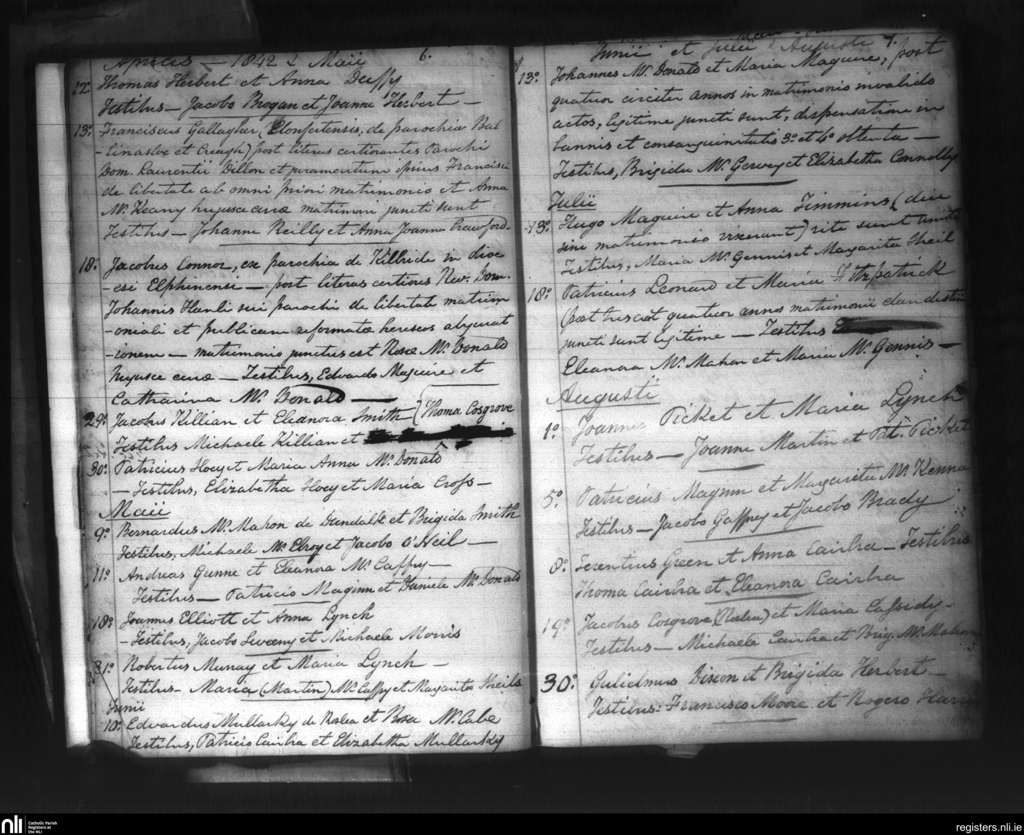 Aprilis — 1842 & Maii 6.
12º Thomas Herbert et Anna Duffy
Testibus — Jacobo Brogan et Joanna Herbert —
13º Franciscus Gallagher (Clonfertensis, de parochia Bal
-linasloe et Creagh) post literas certiorantes Parochi
Dom. Laurentii Dillon et juramentum ipsius Francisci
de libertate ab omni priori matrimonio et Anna
Mc.Keany hujusce curæ matrimonii juncti sunt
Testibus — Johanne Reilly et Anna Joanna Crawford —
18º Jacobus Connor, ex parochia de Kilbride in dioc
-esi Elphinensi — post literas certiores Rev. Dom.
Johannis Hanli sui parochi de libertat matrim
-oniali et publicam reformatæ hereseos abjurat
-ionem — matrimonio junctus est Rosæ Mc.Donald
hujusce curæ — Testibus, Edwardo Maguire et
Catharina Mc.Donald —
29º Jacobus Killian et Eleanora Smith (Thoma Cosgrove
Testibus Michaele Killian et
30º Patricius Hoey et Maria Anna Mc.Donald
— Testibus, Elizabetha Hoey et Maria Crofs —
Maii
9º Bernardus Mc.Mahon de Dundalk et Brigida Smith
Testibus, Michaele Mc.Elroy et Jacobo O'Neil —
11º Andreas Gunne et Eleanora Mc.Caffry —
Testibus — Patricio Maginn et Daniele Mc.Donald
18º Joannes Elliott et Anna Lynch
— Testibus, Jacobo Sweeny et Michaele Morris
31º Robertus Murray et Maria Lynch —
Testibus — Maria (Martin) Mc.Caffry et Margarita Sheils
Junii
10º Edwardus Mullarky de Roslea et Rosa Mc.Cabe
Testibus, Patricio Cairbra et Elizabetha Mullarky
Junii et Julii & Augusti 7.
13º Johannes Mc.Donald et Maria Maguire, post
quatuor circiter annos in matrimonio invalido
actos, legitime juncti sunt, dispensatione in
bannis et consanguinitatis 3º et 4º obtenta —
Testibus, Brigida Mc.Gervey et Elizabetha Connolly
Julii
13º Hugo Maguire et Anna Timmins (diu
sine matrimonio vixerant) rite sunt uniti
Testibus, Maria Mc.Gennis et Margarita Sheil
18º Patricius Leonard et Maria Fitzpatrick
(post tres aut quatuor annos matrimonii clandestini
juncti sunt legitime — Testibus
Eleanora Mc.Mahon et Maria Mc.Gennis —
Augusti
1º Joannes Ticket et Maria Lynch
Testibus — Joanne Martin et Pat. Ticket
5º Patricius Maginn et Margarita Mc.Kenna
Testibus — Jacobo Gaffney et Jacobo Brady
8º Terentius Green et Anna Cairbra — Testibus
Thoma Cairbra et Eleanora Cairbra
19º Jacobus Cosgrove (Roslea) et Maria Cassidy —
Testibus — Michaele Cairbra et Brig. Mc.Mahon
30º Gulielmus Dixon et Brigida Herbert —
Testibus: Francisco Moore et Rogero
nli Catholic Parish Registers at the NLI
registers.nli.ie